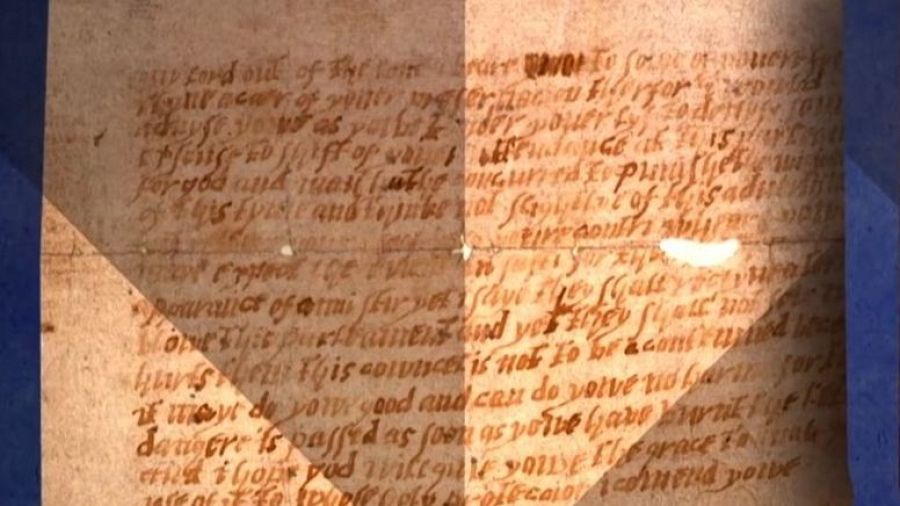 my lord out of the love i beare to some of youere
have a caer of youer preservacion therfor i would
advyse yowe as yowe tender youer lyf to devys
excuse to shift of youer attendance at this parleament
for god and man hathe concurred to punishe the
of this tyme and thinke not slightlye of this
contri wheare
maye expect the event in safti for
apparance of anni stir yet i saye they shall receyve
blowe this parleament and yet they shall not
hurts them this cowncel is not to be acontemned
it maye do yowe good and can do yowe no harme for
dangere is passed as soon as yowe have burnt the
and i hope god will give yowe the grace to mak
use of it to whose holy proteccion i comend yowe